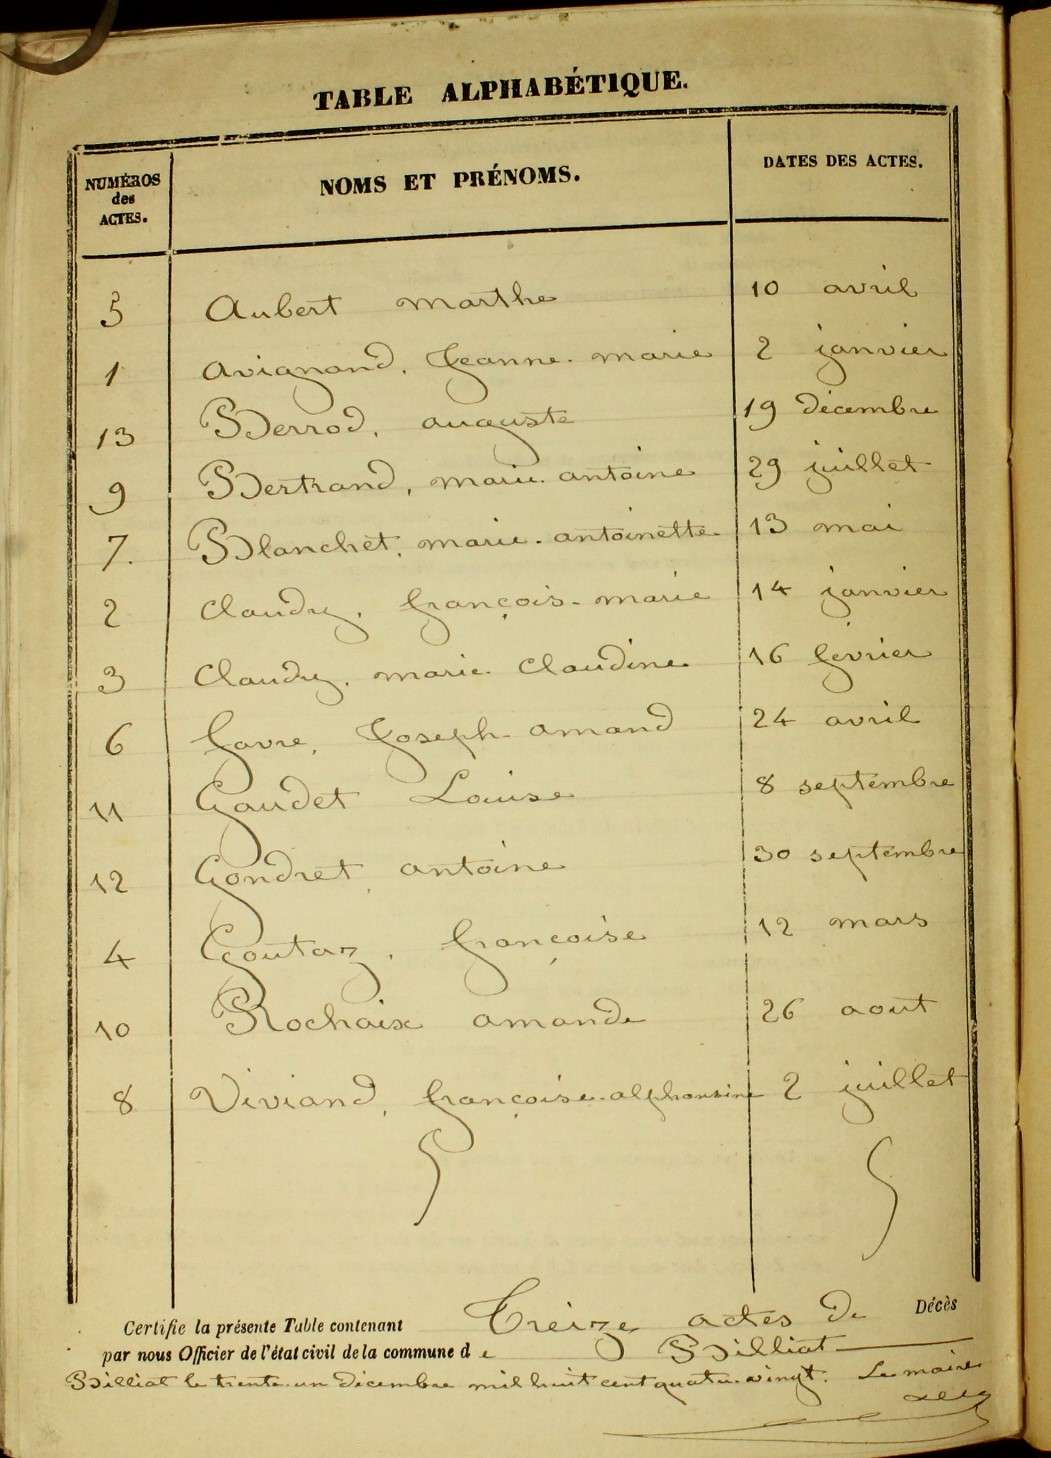 TABLE ALPHABÉTIQUE.
NUMÉROS des ACTES. NOMS ET PRÉNOMS. DATES DES ACTES.
5 Aubert marthe 10 avril
1 Avignand, Jeanne-marie 2 janvier
13 Berrod, auguste 19 décembre
9 Bertrand, marie-antoine 29 juillet
7. Blanchet, marie-antoinette 13 mai
2 Claudy, françois-marie 14 janvier
3 Claudy, marie-Claudine 16 février
6 favre, Joseph-amand 24 avril
11 Gaudet Louise 8 septembre
12 Gondret, antoine 30 septembre
4 Goutaz, françoise 12 mars
10 Rochaix amande 26 aout
8 Viviand, françoise-alphonsine 2 juillet
Certifie la présente Table contenant Treize actes de Décès
par nous Officier de l'état civil de la commune de Billiat
Billiat le trente-un décembre mil huit cent quatre-vingt. Le maire